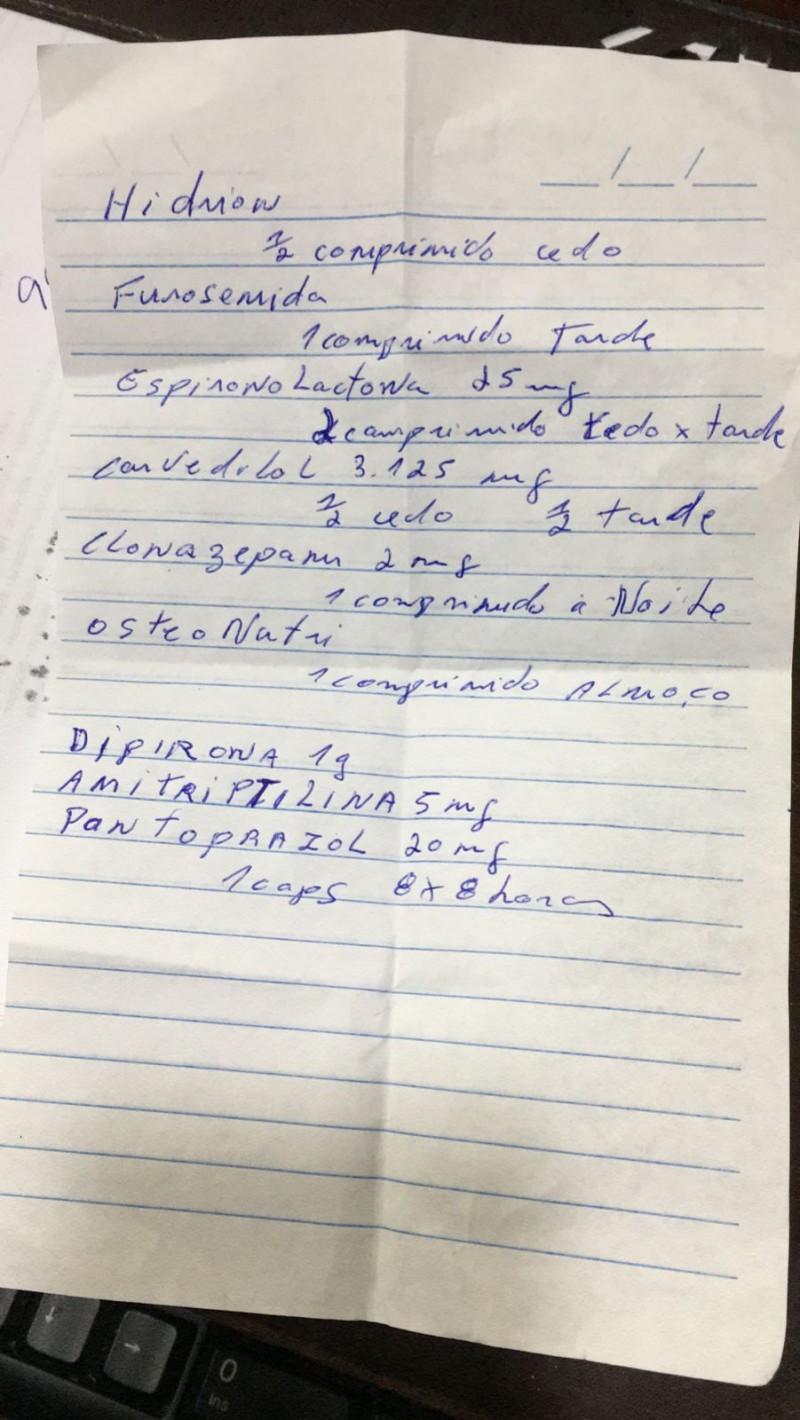 __/__/__
Hidrion
½ comprimido cedo
Furosemida
1 comprimido Tarde
EspironoLactona 25 mg
2 comprimido cedo x tarde
carvediloL 3.125 mg
½ cedo ½ tarde
CLonazepam 2 mg
1 comprimido a Noite
osteo Nutri
1 comprimido ALmoço
DIPIRONA 1g
AMITRIPTILINA 5 mg
PANTOPRAZOL 20 mg
1 caps 8x8 horas